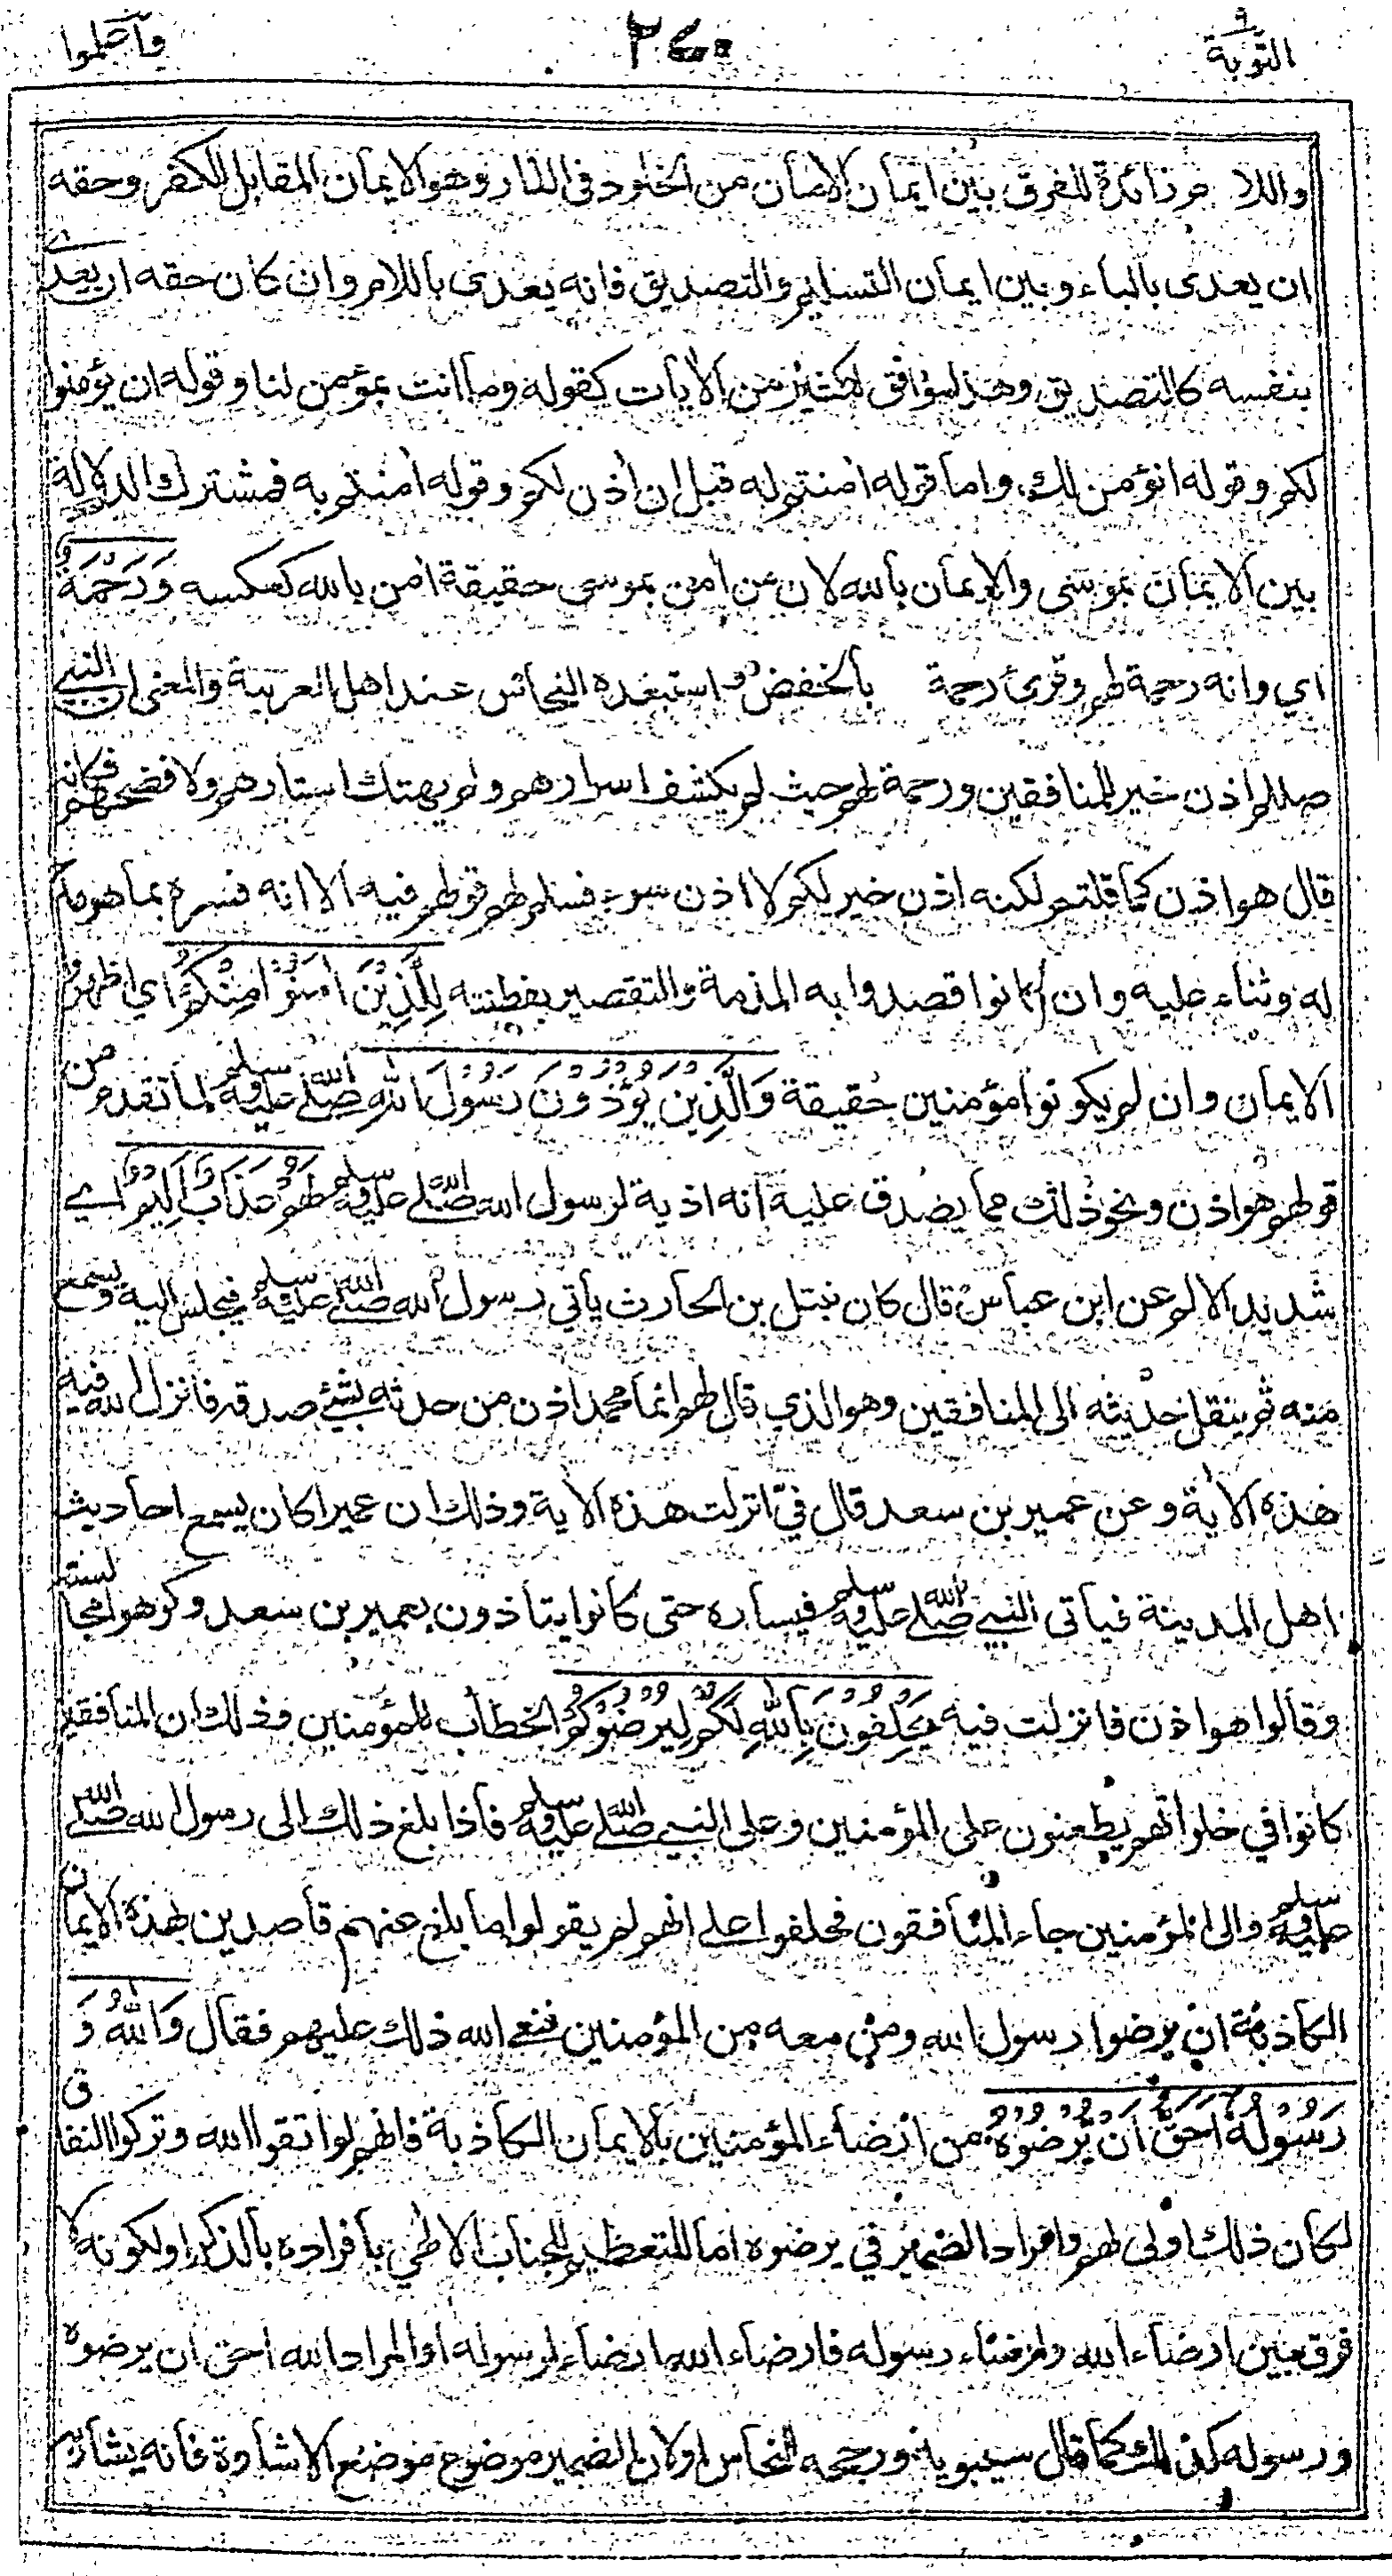 التوبة ٩ ٢٤٠ واعلموا
واللام زائدة للفرق بين ايمان الامان من الخلود فى النار وهو الايمان المقابل للكفر وحقه
ان يعدى بالباء وبين ايمان التسليم والتصديق فانه يعدى باللام وان كان حقه ان يعدى
بنفسه كالتصديق وهذا موافق لكثير من الايات كقوله وما انت بمؤمن لنا وقوله ان يؤمنوا
لكم وقوله انؤمن لك، واما قوله امنتم له قبل ان أذن لكم وقوله امنتم به فمشترك الدلالة
بين الايمان بموسى والايمان بالله لان من امن بموسى حقيقة امن بالله كعكسه وَرَحْمَةٌ
اي وانه رحمة لهم وقرئ رحمة بالخفض واستبعده النحاس عند اهل العربية والمعنى ان النبي
صللم اذن خير للمنافقين ورحمة لهم حيث لم يكشف اسرارهم ولم يهتك استارهم ولا فضحهم فكانه
قال هو اذن كما قلتم لكنه اذن خير لكم لا اذن سوء فسلم لهم قولهم فيه الا انه فسره بما هو مدح
له وثناء عليه وان كانوا قصدوا به المذمة والتقصير بفطنته لِلَّذِيْنَ اٰمَنُوْا مِنْكُمْ اي اظهروا
الايمان وان لم يكونوا مؤمنين حقيقة وَالَّذِيْنَ يُؤْذُوْنَ رَسُوْلَ اللهِ صلى الله عليه وسلم لما تقدم من
قولهم هو اذن ونحو ذلك مما يصدق عليه انه اذية لرسول الله صلى الله عليه وسلم لَهُمْ عَذَابٌ اَلِيْمٌ اي
شديد الالم عن ابن عباس قال كان نبتل بن الحارث يأتي رسول الله صلى الله عليه وسلم فيجلس اليه ويسمع
منه ثم ينقل حديثه الى المنافقين وهو الذي قال لهم انما محمد اذن من حدثه بشئ صدقه فانزل الله فيه
هذه الاية وعن عمير بن سعد قال فيّ انزلت هذه الاية وذلك ان عميرا كان يسمع احاديث
اهل المدينة فيأتى النبي صلى الله عليه وسلم فيساره حتى كانوا يتأذون بعمير بن سعد وكرهوا مجالسته
وقالوا هو اذن فانزلت فيه يَحْلِفُوْنَ بِاللهِ لَكُمْ لِيُرْضُوْكُمْ الخطاب للمؤمنين وذلك ان المنافقين
كانوا في خلواتهم يطعنون على المؤمنين وعلى النبي صلى الله عليه وسلم فاذا بلغ ذلك الى رسول الله صلى الله
عليه وسلم والى المؤمنين جاء المنافقون فحلفوا على انهم لم يقولوا ما بلغ عنهم قاصدين بهذه الايمان
الكاذبة ان يرضوا رسول الله ومن معه من المؤمنين فنعى الله ذلك عليهم فقال وَاللهُ وَ
رَسُوْلُهٗ اَحَقُّ اَنْ يُّرْضُوْهُ من ارضاء المؤمنين بالايمان الكاذبة فانهم لو اتقوا الله وتركوا النفاق
لكان ذلك اولى لهم وافراد الضمير في يرضوه اما للتعظيم للجناب الالهي بافراده بالذكر او لكونه لا
فرق بين ارضاء الله وارضاء رسوله فارضاء الله ارضاء لرسوله او المراد الله احق ان يرضوه
ورسوله كذلك كما قال سيبويه ورجحه النحاس او لان الضمير موضوع موضع الاشارة فانه يشار به